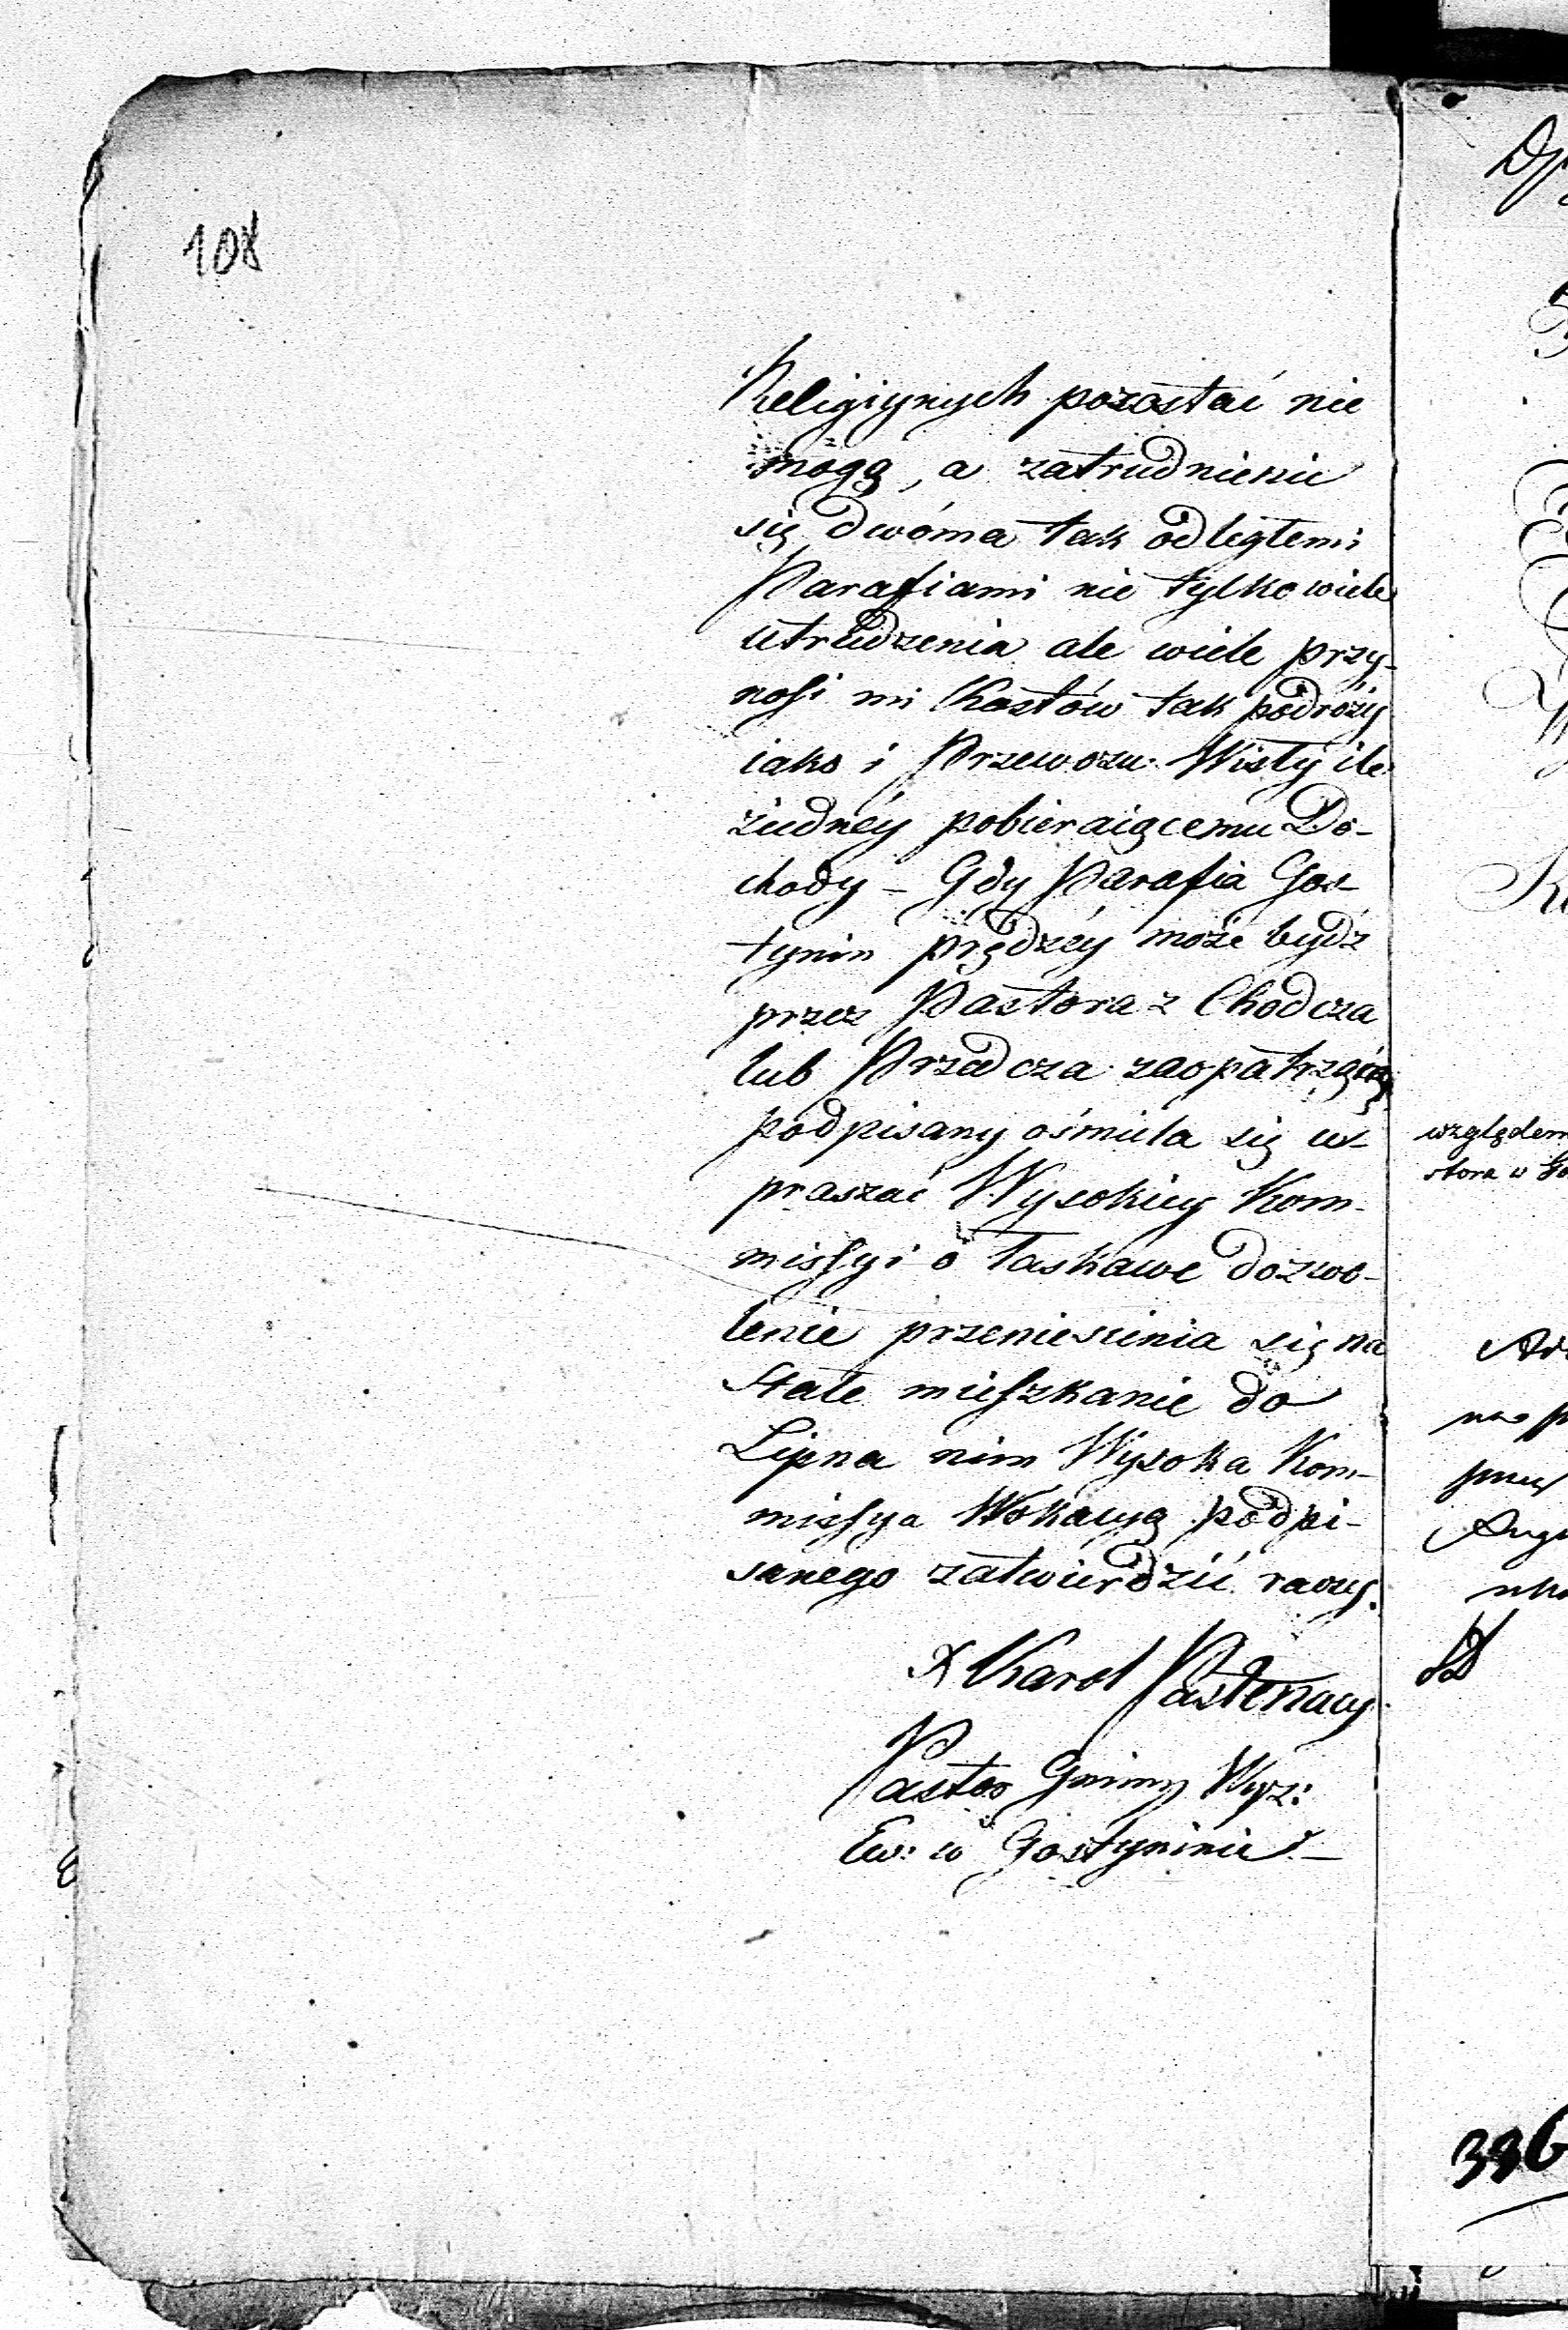 108
Religiynych pozostać nie
mogą, a zatrudnienie
się dwóma tak odległemi
Parafiami nie tylko wiele
utrudzenia ale wiele przy-
nosi mi Kosztów tak podróży
iako i Przewozu Wisły ile
żadnéy pobieraiącemu Do-
chody – Gdy Parafia Gos-
tynin prędzéy może bydź
przez Pastora z Chodcza
lub Przedcza zaopatrzoną
podpisany ośmiela się u-
praszać Wysokiey Kom-
missyi o łaskawe dozwo-
lenie przeniesienia się na
stałe mieszkanie do
Lipna nim Wysoka Kom-
missya Wokacyą podpi-
sanego zatwierdzić raczy.
X Karol Pastenacy
Pastor Gminy Wyz:
Ew: w Gostyninie –
względem
stora w Go
396